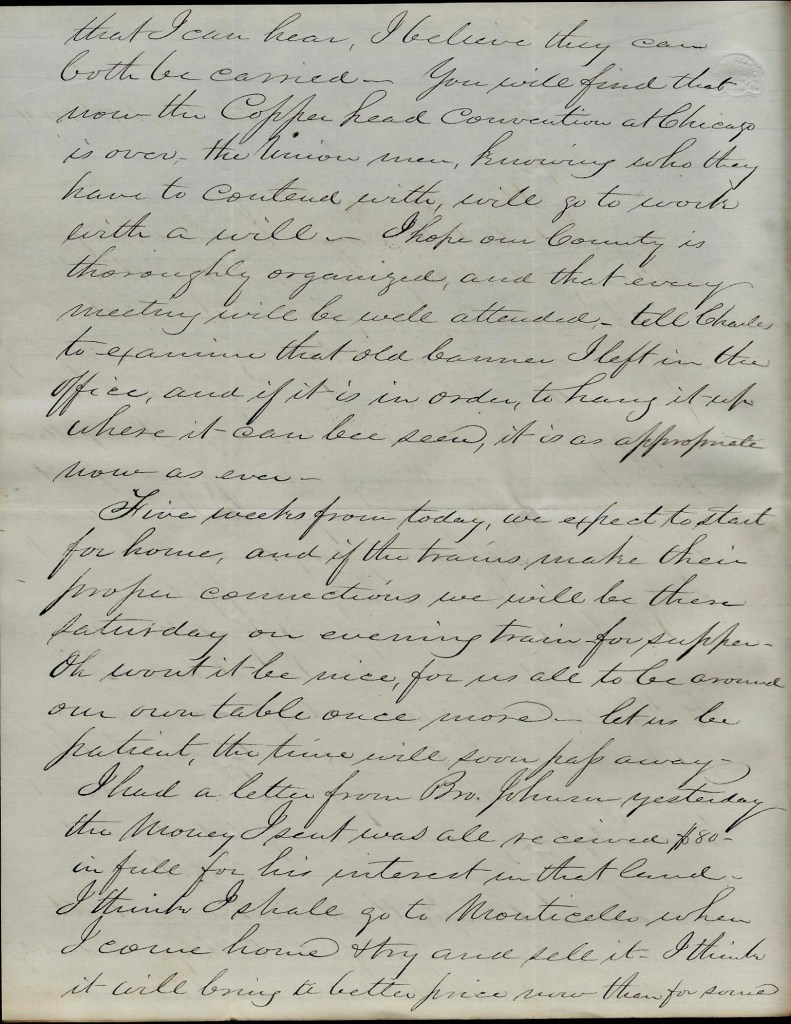 that I can hear, I believe they can
both be carried – You will find that
now the Copper head Convention at Chicago
is over, the Union men, knowing who they
have to contend with, will go to work
with a will – I hope our County is
thoroughly organized, and that every
meeting will be well attended, – tell Charles
to examine that old banner I left in the
office, and if it is in order, to hang it up
where it can bee seen, it is as appropriate
now as ever –
Five weeks from today, we expect to start
for home, and if the trains make their
proper connections we will be there
saturday on evening train for supper –
Oh wont it be nice, for us all to be around
our own table once more – let us be
patient, the time will soon pass away –
I had a letter from Bro. Johnson yesterday
the Money I sent was all received $80 –
in full for his interest in that land –
I think I shall go to Monticello when
I come home & try and sell it – I think
it will bring a better price now than for some